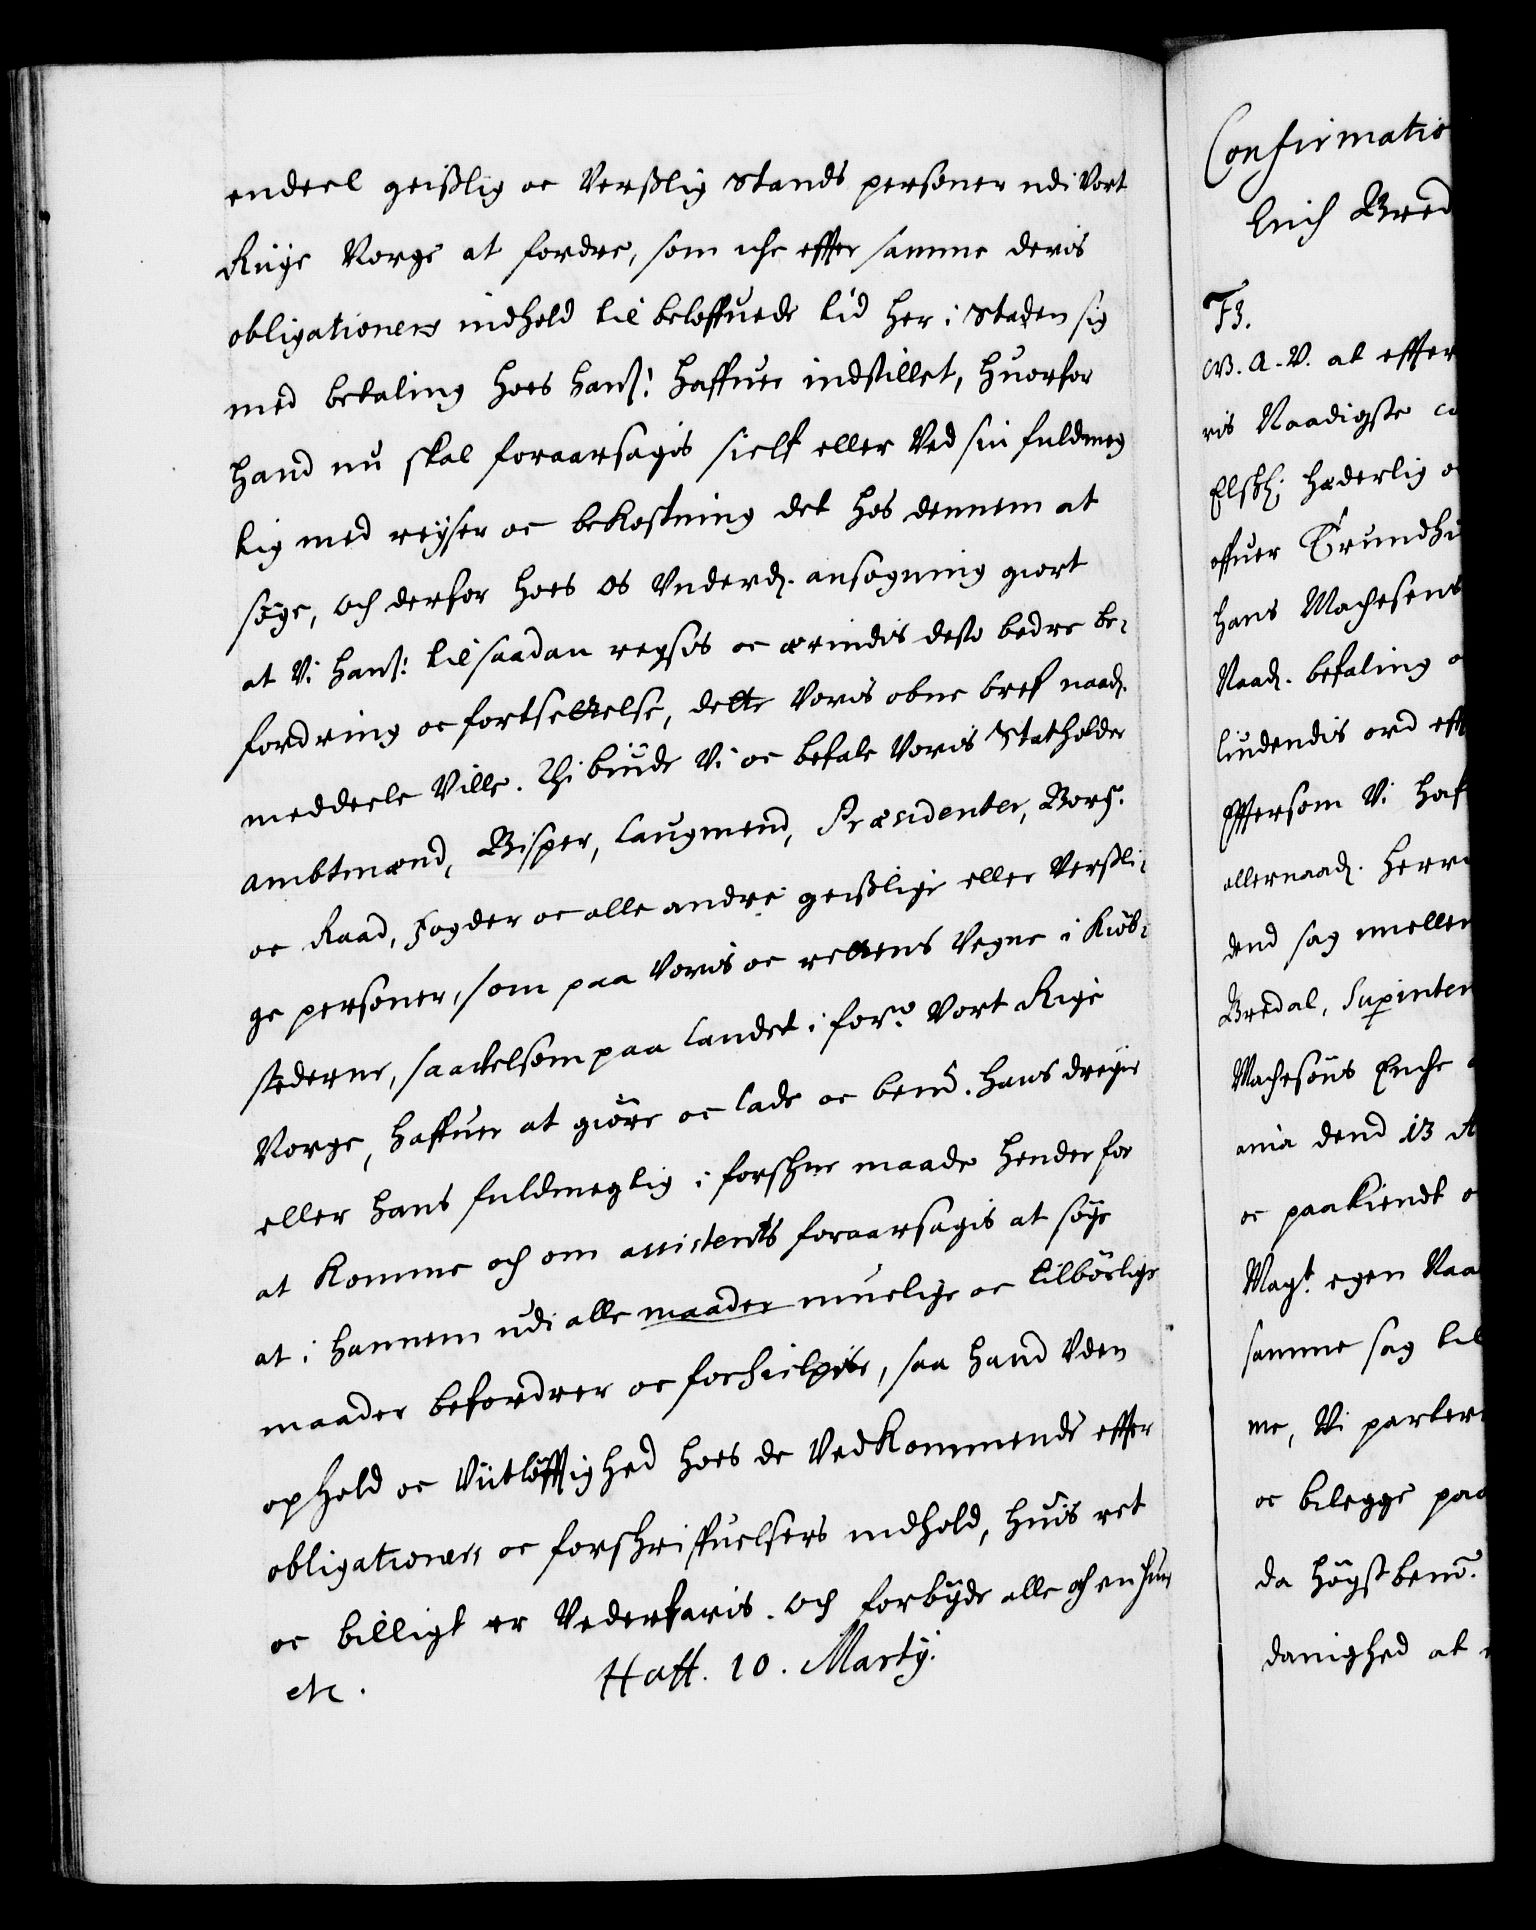 endeel geislig oc Verslig Stands personer udi Vort
Riige Norge at fordre, som iche effter samme deris
obligationers indhold til beloffuede tid her i Staden sig
med betaling hoes hans: haffuer indstillet, huorfor
hand nu skal foraarsagis sielf eller Ved sin fuldmeg
tig med reyser oc bekostning det hos dennem at
søge, och derfor hoes os Underd. ansøgning giort
at Vi hans: til saadan reyses oc ærindis desto bedre be-
fordring oc fortsettelse, dette Voris obne bref naad.
meddeele Ville. Thi biude Vi oc befale Voris Statholder
Ambtmænd, Bisper, Laugmend, Præsidenter, Borg.
oc Raad, Fogder oc alle andre geislige eller Versli-
ge personer, som paa Voris oc rettens Vegne i Kiøb-
stederne, saauelsom paa Landet i forn: Vort Rige
Norge, haffuer at giøre oc lade oc bem. hans drenge
eller hans fuldmegtig i forschne maade hender for
at komme och om assistents foraarsagis at søge
at i hannem udi alle maader muelige oc tilbørlige
maader befordrer oc forhielper, saa hand Uden
ophold oc Viitløfftighed hoes de Vedkommende effter
obligationers oc forschriffuelsers indhold, huis ret
oc billigt er Vederfaris. Och forbyde alle och en huer
etc. Haff. 10. Marty.
Confirmatio
Erich Bred
F3.
G. A. V. at effter
ris Naadigste
Elskl: hæderlig o
offuer Trundhi
hans Machesens
Naad. befaling o
liudendis ord eff
Effersom Vi haf
allernaad. Herre
dend sag imellem
Bredal, Supinten
Machesøns Enche
ania dend 13 A
oc paakiendt o
Mayt. egen Naa
samme sag til
me, Vi parter
oc bilegge paa
da høgstbem.
danighed at